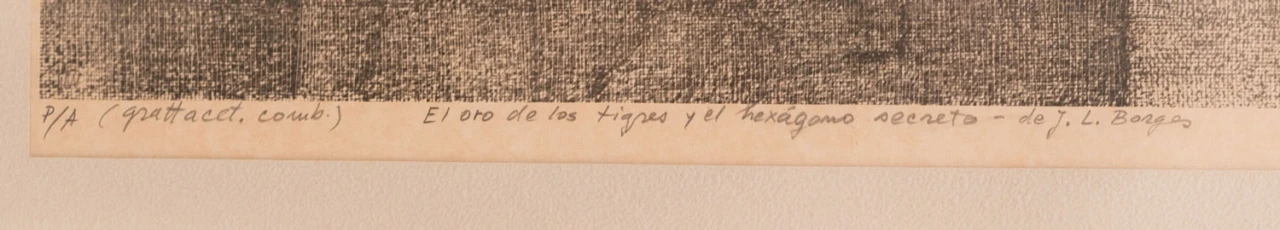 P/A (grattacet. comb.) El oro de los tigres y el hexágono secreto - de J. L. Borges